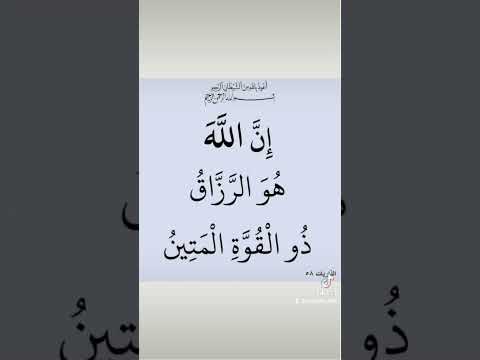 أعوذ بالله من الشيطان الرجيم
بسم الله الرحمن الرحيم
إِنَّ اللَّهَ
هُوَ الرَّزَّاقُ
ذُو الْقُوَّةِ الْمَتِينُ
الذاريات ٥٨